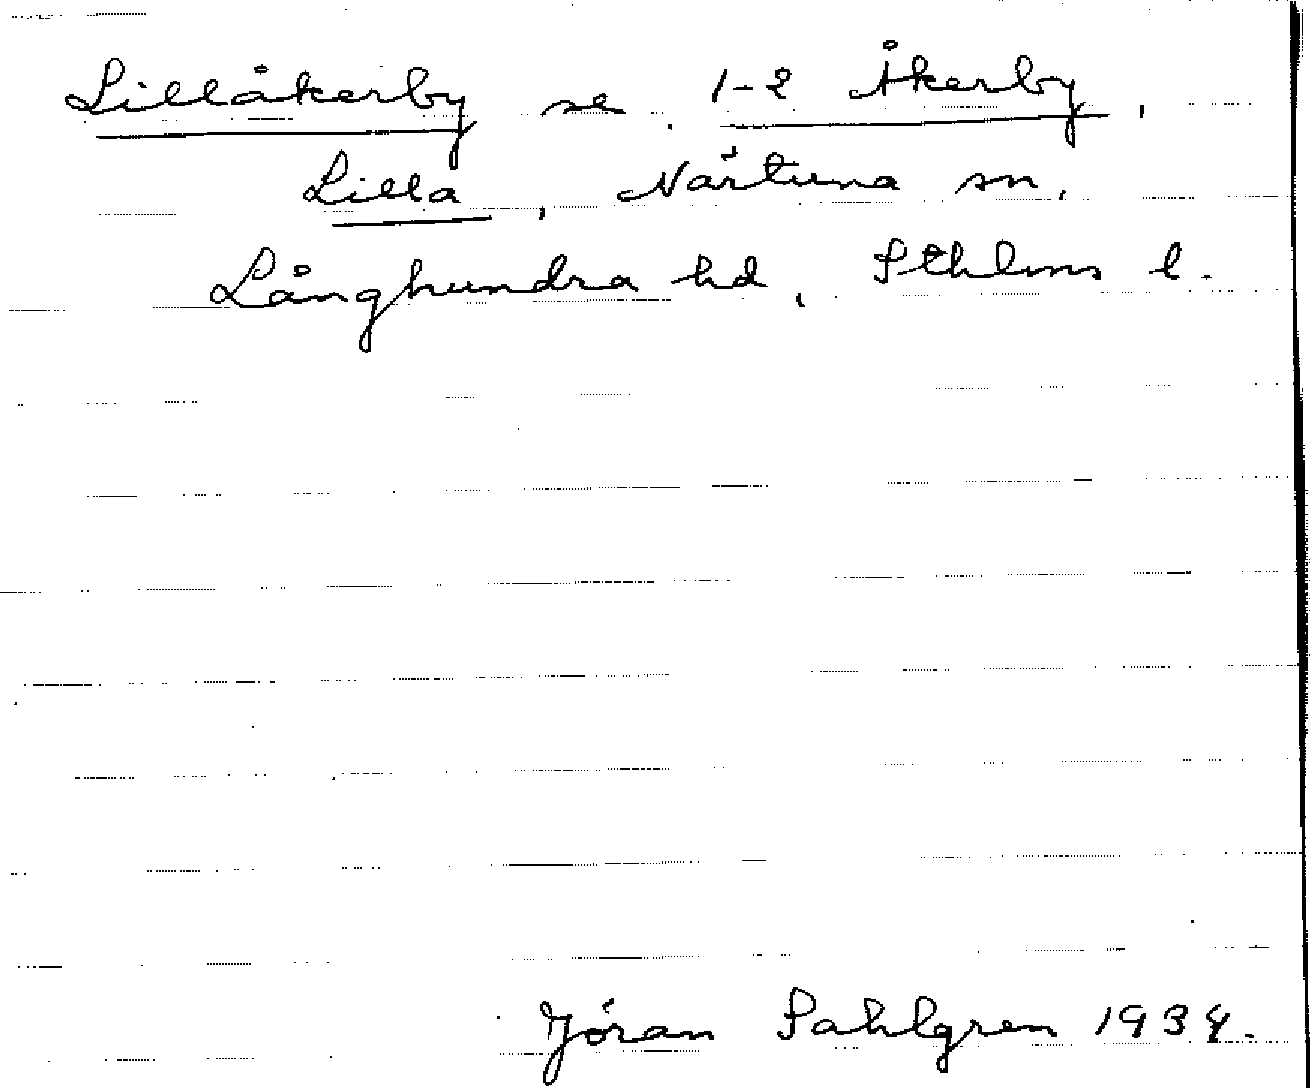 Lillåkerby se. 1-2 Åkerby,
Lilla, Närtuna sn,
Långhundra hd, Sthlms l.
Jöran Sahlgren 1934.